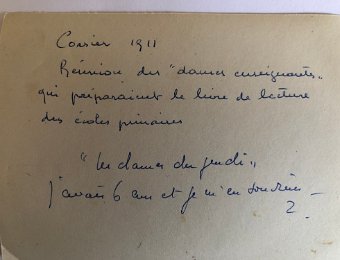 Corsier 1911
Réunion des "dames enseignantes"
qui préparaient le livre de lecture
des écoles primaires
"Les dames du jeudi"
j'avais 6 ans et je m'en souviens